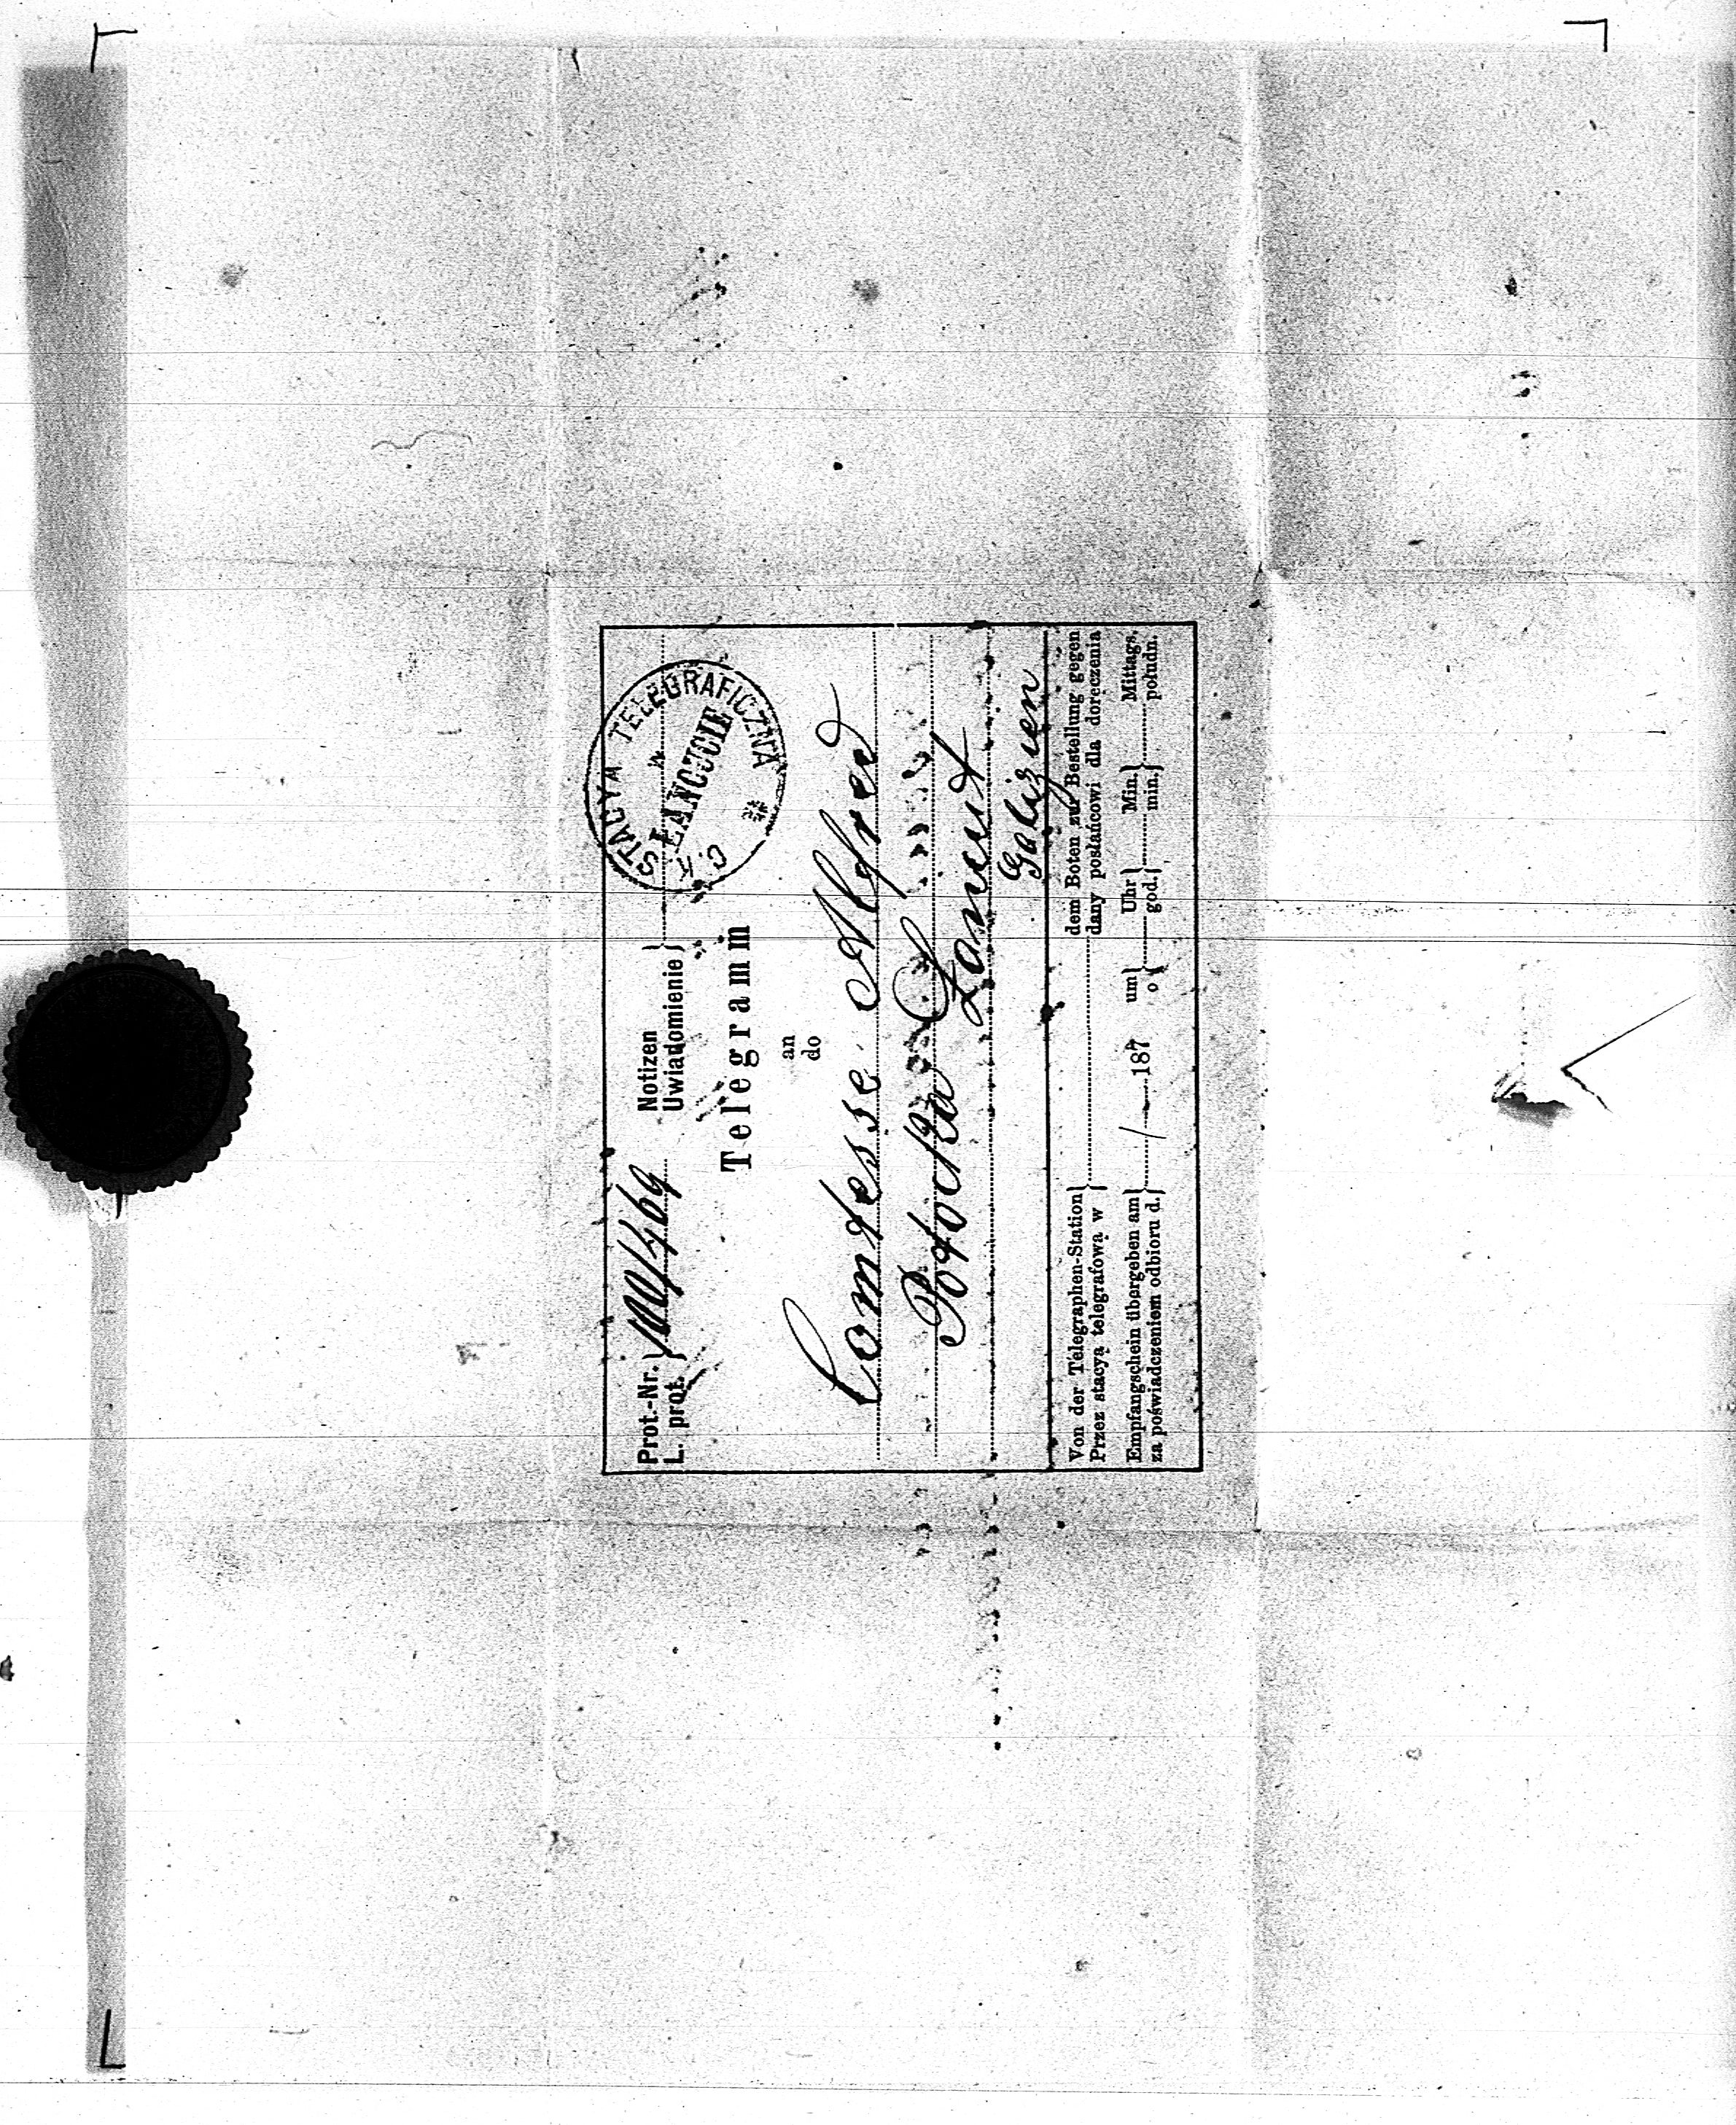 Prot.-Nr. }
L. prot. }
Notizen }
Uwiadomienie }
C. K. STACYA TELEGRAFICZNA
w
ŁAŃCUCIE
Telegramm
an
do
Comtesse Alfred
Potocka
Lancut
Galizien
Von der Telegraphen-Station } dem Boten zur Bestellung gegen
Przez stacyą telegrafową w } dany posłańcowi dla doręczenia
Empfangschein übergeben am } / 187 um } Uhr } Min. } Mittags.
za poświadczeniem odbioru d. } o } god. } min. } południ.